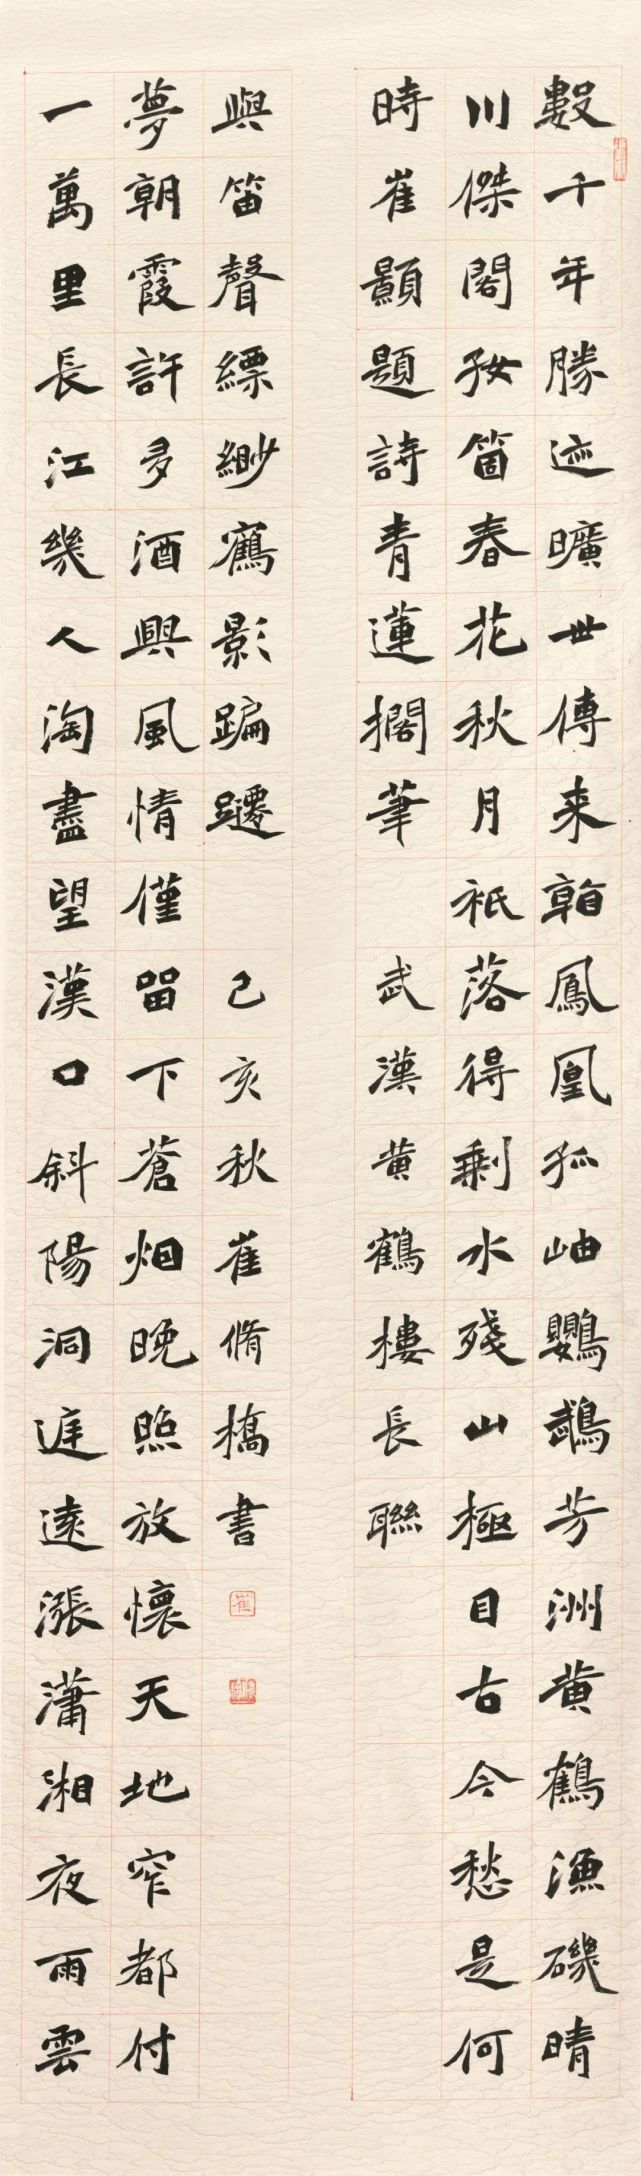 數千年勝迹曠世傳来看鳳凰孤岫鸚鵡芳洲黄鶴漁磯晴
川傑閣好箇春花秋月衹落得剩水殘山極目古今愁是何
時崔顥題詩青蓮擱筆 武漢黄鶴樓長聯
一萬里長江幾人淘盡望漢口斜陽洞庭遠漲瀟湘夜雨雲
夢朝霞許多酒興風情僅留下蒼烟晚照放懷天地窄都付
與笛聲縹緲鶴影蹁躚 己亥秋崔脩橋書
崔